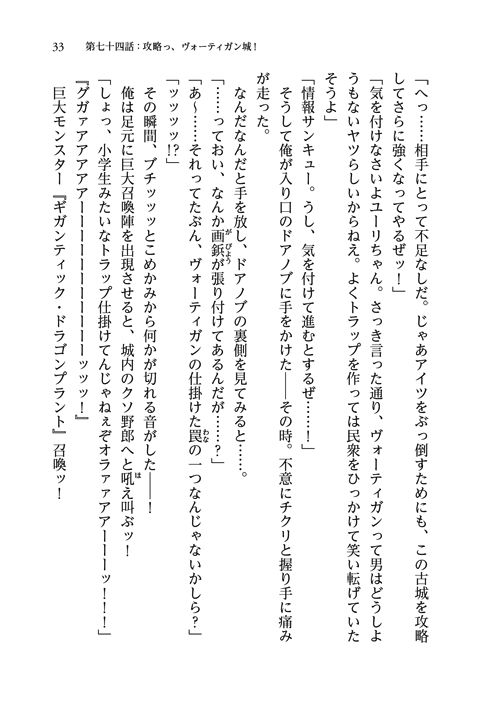 33　第七十四話：攻略っ、ヴォーティガン城！
「へっ……相手にとって不足なしだ。じゃあアイツをぶっ倒すためにも、この古城を攻略
してさらに強くなってやるぜッ！」
「気を付けなさいよユーリちゃん。さっき言った通り、ヴォーティガンって男はどうしよ
うもないヤツらしいからねえ。よくトラップを作っては民衆をひっかけて笑い転げていた
そうよ」
「情報サンキュー。うし、気を付けて進むとするぜ……！」
　そうして俺が入り口のドアノブに手をかけた――その時。不意にチクリと握り手に痛み
が走った。
　なんだなんだと手を放し、ドアノブの裏側を見てみると……。
「……っておい、なんか画鋲がびょうが張り付けてあるんだが……？」
「あ～……それってたぶん、ヴォーティガンの仕掛けた罠わなの一つなんじゃないかしら？」
「ッッッッ!?」
　その瞬間、ブチッッッとこめかみから何かが切れる音がした――！
　俺は足元に巨大召喚陣を出現させると、城内のクソ野郎へと吼ほえ叫ぶッ！
「しょっ、小学生みたいなトラップ仕掛けてんじゃねぇぞオラァァアアーーーッ！！！」
『グガァアアアアアーーーーーーーーーーーッッッ！』
　巨大モンスター『ギガンティック・ドラゴンプラント』召喚ッ！